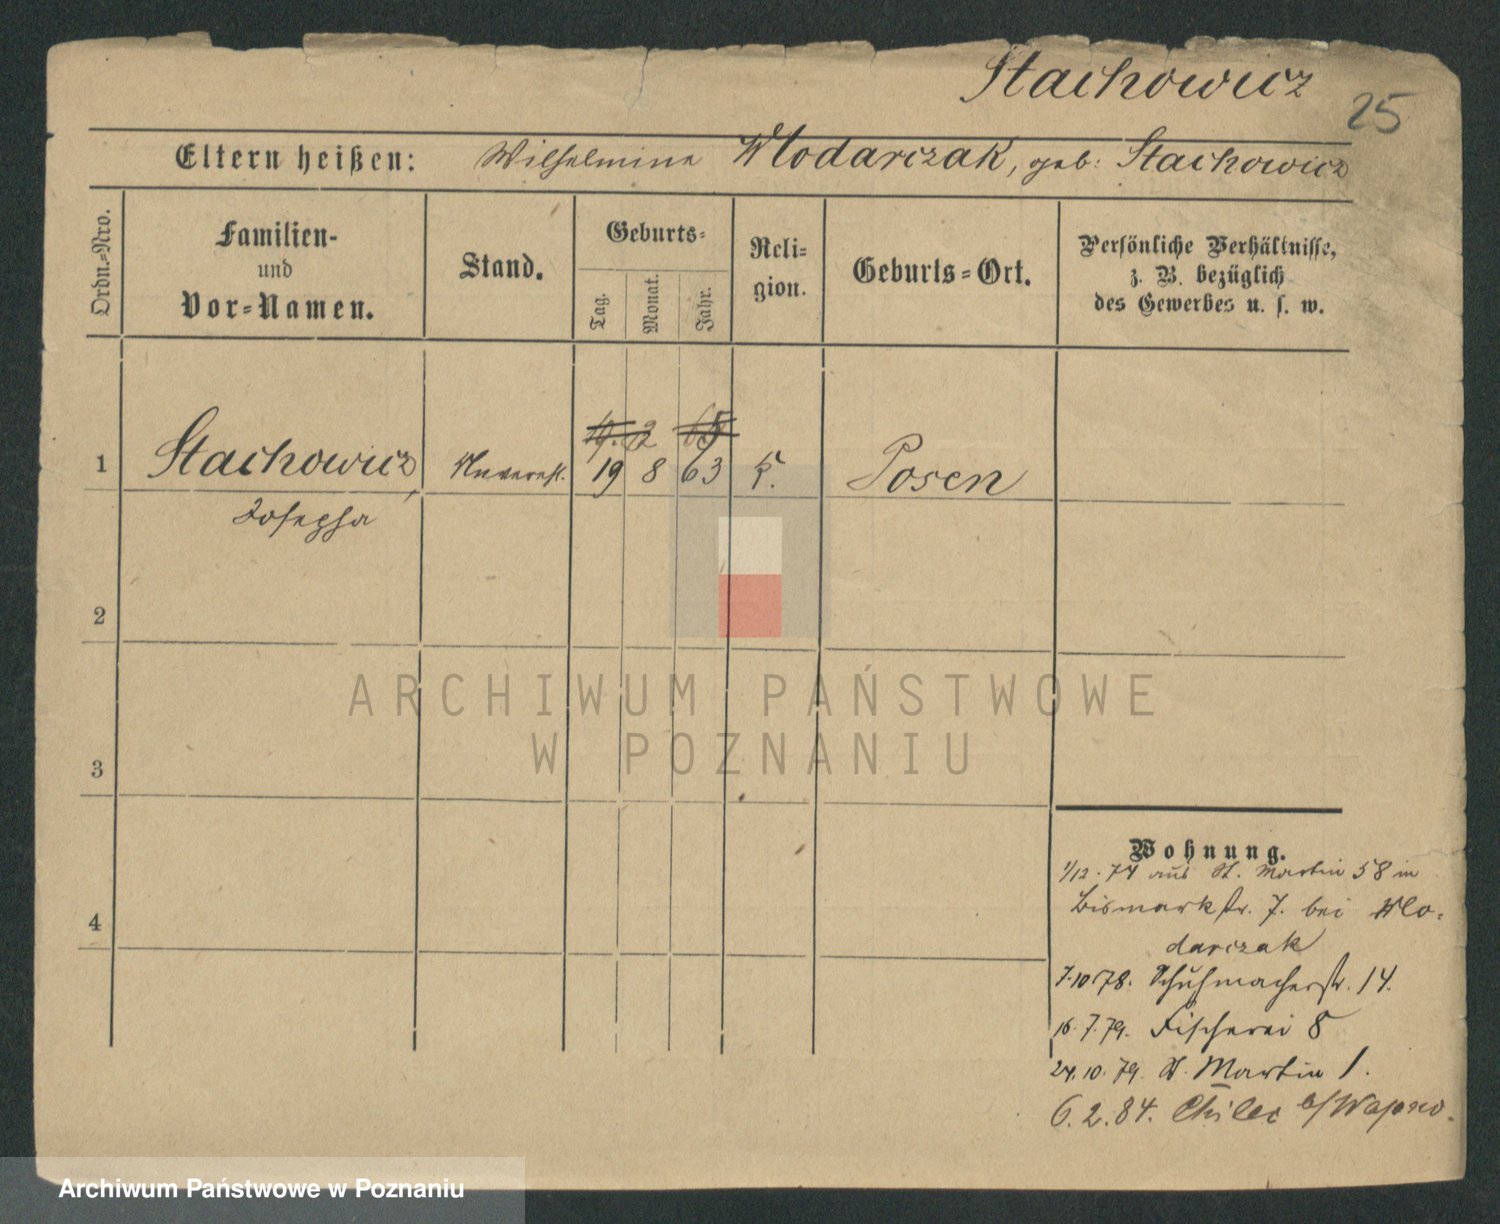 Stachowicz
25
Eltern heißen: Wilhelmine Wlodarczak, geb: Stachowicz
Ordn.-Nro.
Familien-
und
Vor-Namen.
Stand.
Geburts-
Tag.
Monat.
Jahr.
Reli-
gion.
Geburts-Ort.
Persönliche Verhältnisse,
z. B. bezüglich
des Gewerbes u. s. w.
2 65
1 Stachowicz, Unvereh. 19 8 63 k. Posen
Josepha
2
3
4
ARCHIWUM PAŃSTWOWE
W POZNANIU
Wohnung.
1/12. 74 aus St. Martin 58 in
Bismarkstr. 7. bei Wlo-
darczak
7.10 78. Schuhmacherstr. 14.
16. 7. 79. Fischerei 8
24. 10. 79. St. Martin 1.
6. 2. 84. b/ Wapno.
Archiwum Państwowe w Poznaniu